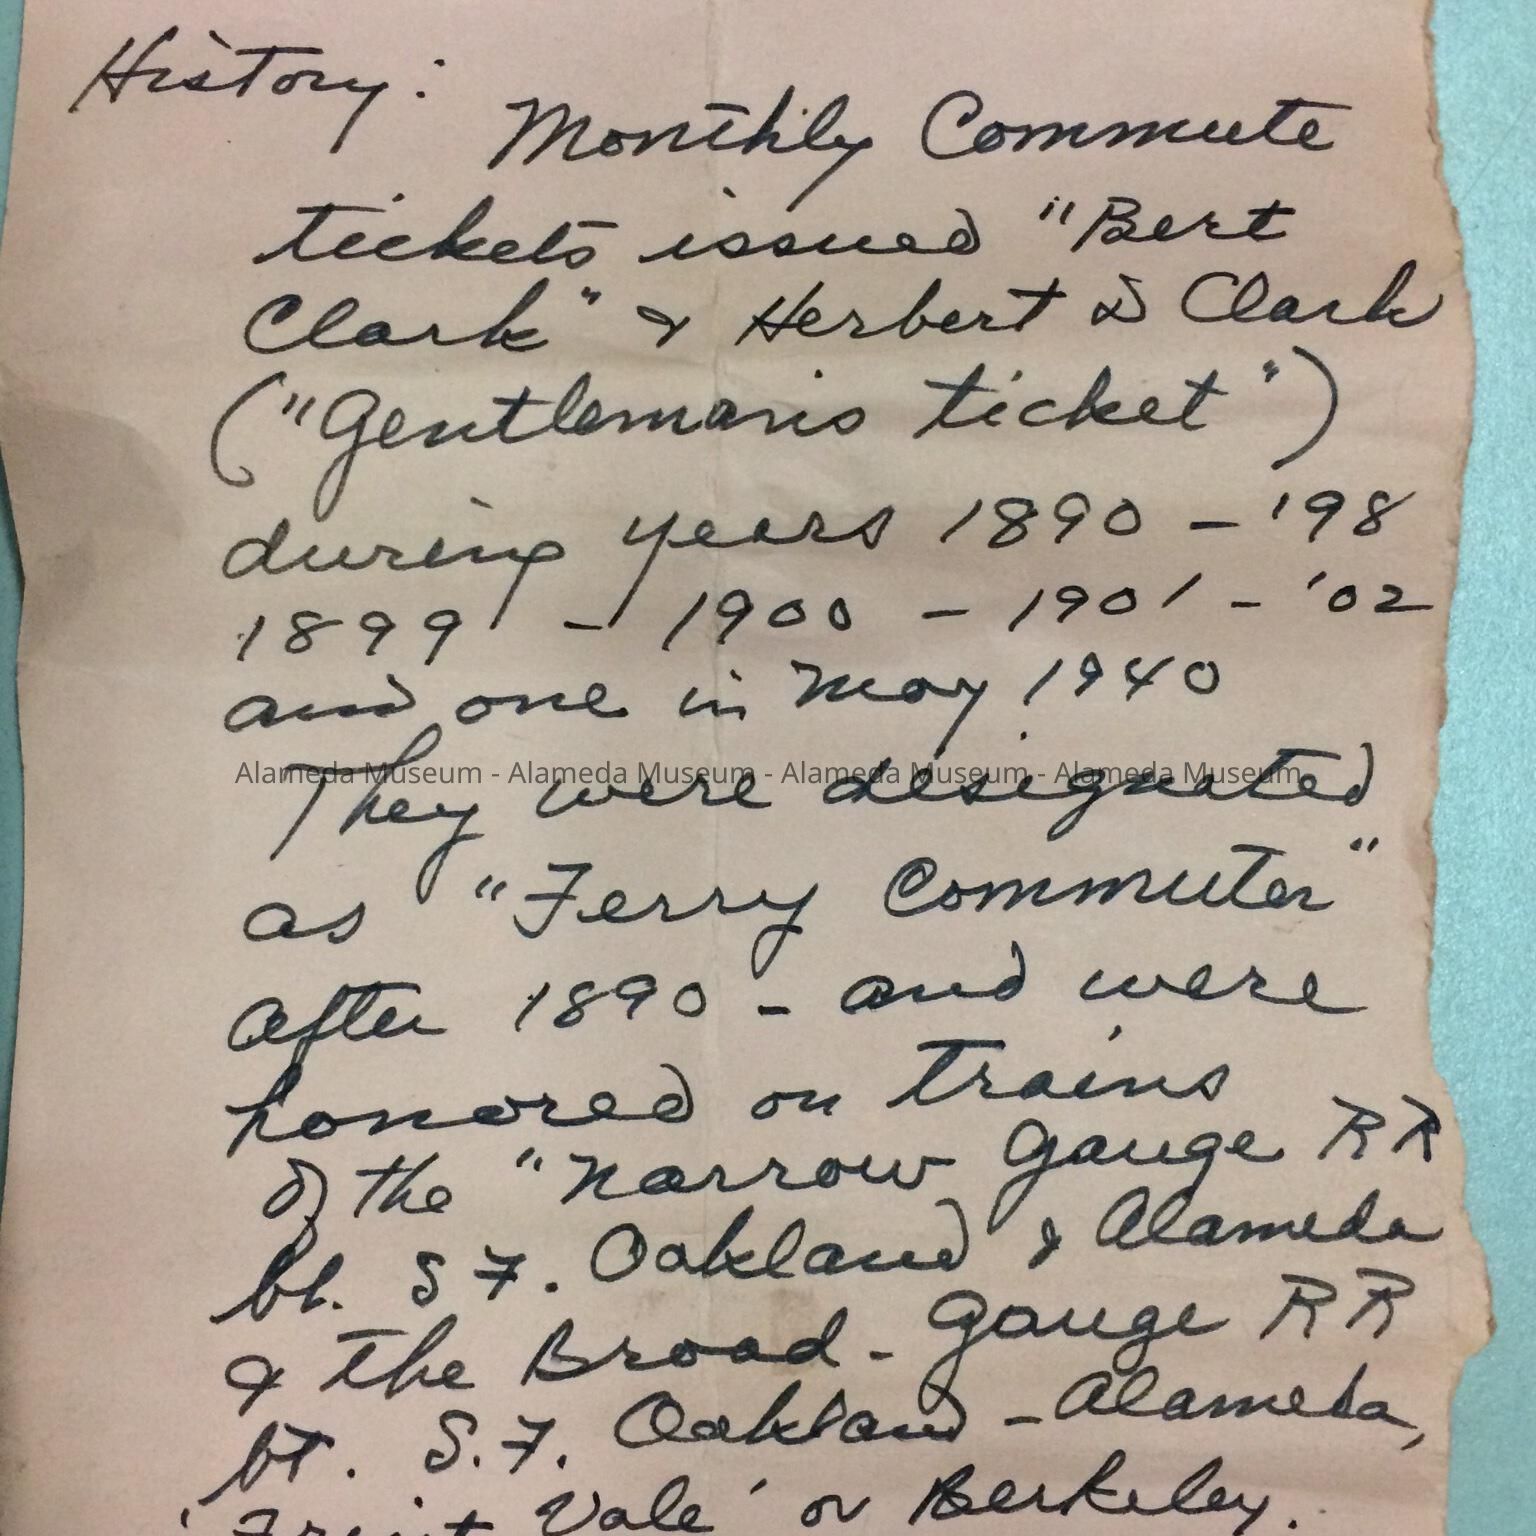 History:
Monthly Commute
tickets issued "Bert
Clark" & Herbert D Clark
("Gentleman's ticket")
during years 1890 - '98
1899 - 1900 - 1901 - '02
and one in May 1940
Alameda Museum - Alameda Museum - Alameda Museum - Alameda Museum
They were designated
as "Ferry Commuter"
after 1890 - and were
honored on trains
of the "Narrow Gauge RR
bt. S F. Oakland & Alameda
& the Broad - Gauge RR
bt. S.F. Oakland - Alameda,
'Fruit Vale' or Berkeley.